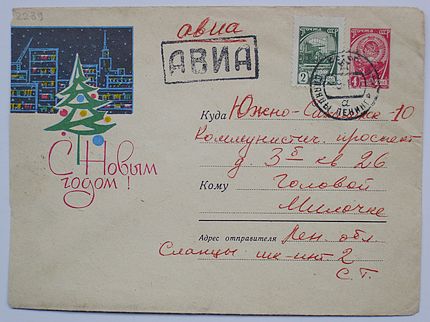 2239
авиа
АВИА
ПОЧТА
2
ПОЧТА
Куда Южно-Сахалинск-10
Коммунистич. проспект
д 3б кв 26
С Новым
годом!
Кому Головой
Милочке
Адрес отправителя Лен. обл
Сланцы шк-инт 2
С.Т.